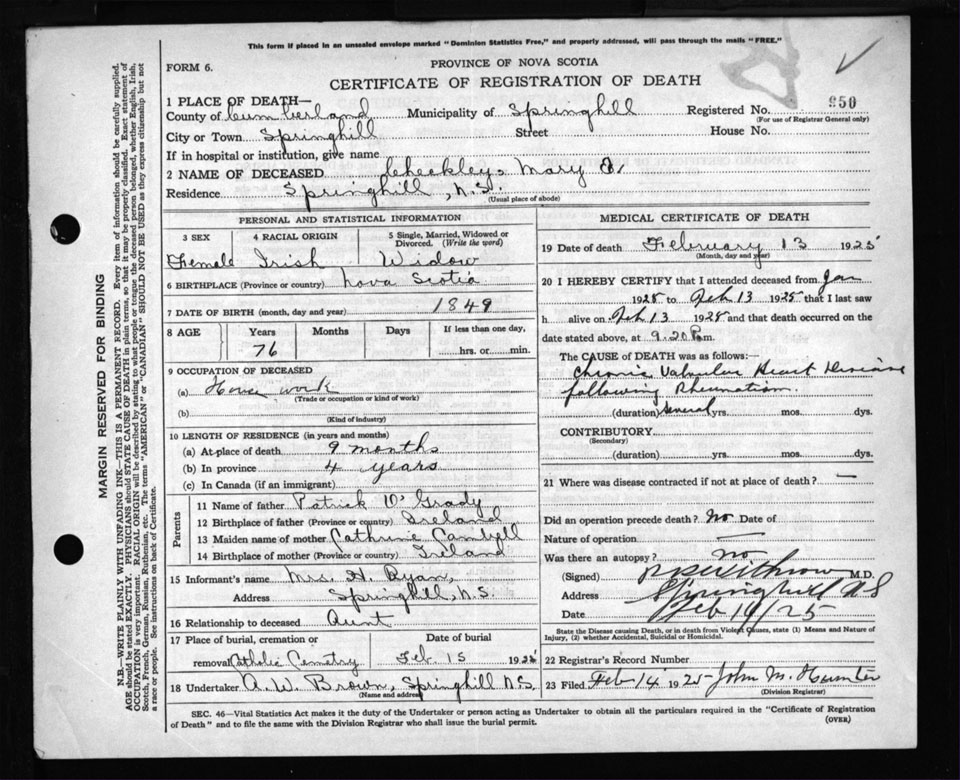 This form if placed in an unsealed envelope marked "Dominion Statistics Free," and properly addressed, will pass through the mails "FREE."
FORM 6.
PROVINCE OF NOVA SCOTIA
CERTIFICATE OF REGISTRATION OF DEATH
1 PLACE OF DEATH—
County of Cumberland Municipality of Springhill Registered No. 950
(For use of Registrar General only)
City or Town Springhill Street House No.
If in hospital or institution, give name
2 NAME OF DECEASED Checkley, Mary
Residence Springhill, N.S.
(Usual place of abode)
PERSONAL AND STATISTICAL INFORMATION
3 SEX 4 RACIAL ORIGIN 5 Single, Married, Widowed or Divorced. (Write the word)
Female Irish Widow
6 BIRTHPLACE (Province or country) Nova Scotia
7 DATE OF BIRTH (month, day and year) 1849
8 AGE Years Months Days If less than one day,
76 hrs. or min.
9 OCCUPATION OF DECEASED
(a) House work
(Trade or occupation or kind of work)
(b)
(Kind of industry)
10 LENGTH OF RESIDENCE (in years and months)
(a) At place of death 9 months
(b) In province 4 years
(c) In Canada (if an immigrant)
Parents
11 Name of father Patrick O'Grady
12 Birthplace of father (Province or country) Ireland
13 Maiden name of mother Cathrine Cambell
14 Birthplace of mother (Province or country) Ireland
15 Informant's name Mrs. H. Ryan,
Address Springhill, N.S.
16 Relationship to deceased Aunt
17 Place of burial, cremation or removal Catholic Cemetry Date of burial Feb. 15 1925
18 Undertaker A. W. Brown, Springhill N.S.
(Name and address)
MEDICAL CERTIFICATE OF DEATH
19 Date of death February 13 1925
(Month, day and year)
20 I HEREBY CERTIFY that I attended deceased from Jan
1925 to Feb 13 1925 that I last saw
h alive on Feb 13 1925 and that death occurred on
date stated above, at 9.20 P.m.
The CAUSE of DEATH was as follows:—
Chronic Valvular Heart Disease
following Rheumatism.
(duration) Several yrs. mos. dys.
CONTRIBUTORY
(Secondary)
(duration) yrs. mos. dys.
21 Where was disease contracted if not at place of death? —
Did an operation precede death? No Date of
Nature of operation —
Was there an autopsy? no
(Signed) Withrow M.D.
Address Springhill N S
Date Feb 14/25
State the Disease causing Death, or in death from Violent Causes, state (1) Means and Nature of Injury, (2) whether Accidental, Suicidal or Homicidal.
22 Registrar's Record Number
23 Filed Feb 14 1925 John M. Hunter
(Division Registrar)
SEC. 46—Vital Statistics Act makes it the duty of the Undertaker or person acting as Undertaker to obtain all the particulars required in the "Certificate of Registration
of Death" and to file the same with the Division Registrar who shall issue the burial permit.
(OVER)
MARGIN RESERVED FOR BINDING
N.B.—WRITE PLAINLY WITH UNFADING INK—THIS IS A PERMANENT RECORD. Every item of information should be carefully supplied.
AGE should be stated EXACTLY. PHYSICIANS should STATE CAUSE OF DEATH in plain terms, so that it may be properly classified. Exact statement of
OCCUPATION is very important. RACIAL ORIGIN will be described by stating to what people or tongue the deceased person belonged, whether English, Irish,
Scotch, French, German, Russian, Ruthenian, etc. The terms "AMERICAN" or "CANADIAN" SHOULD NOT BE USED as they express citizenship but not
a race or people. See instructions on back of Certificate.